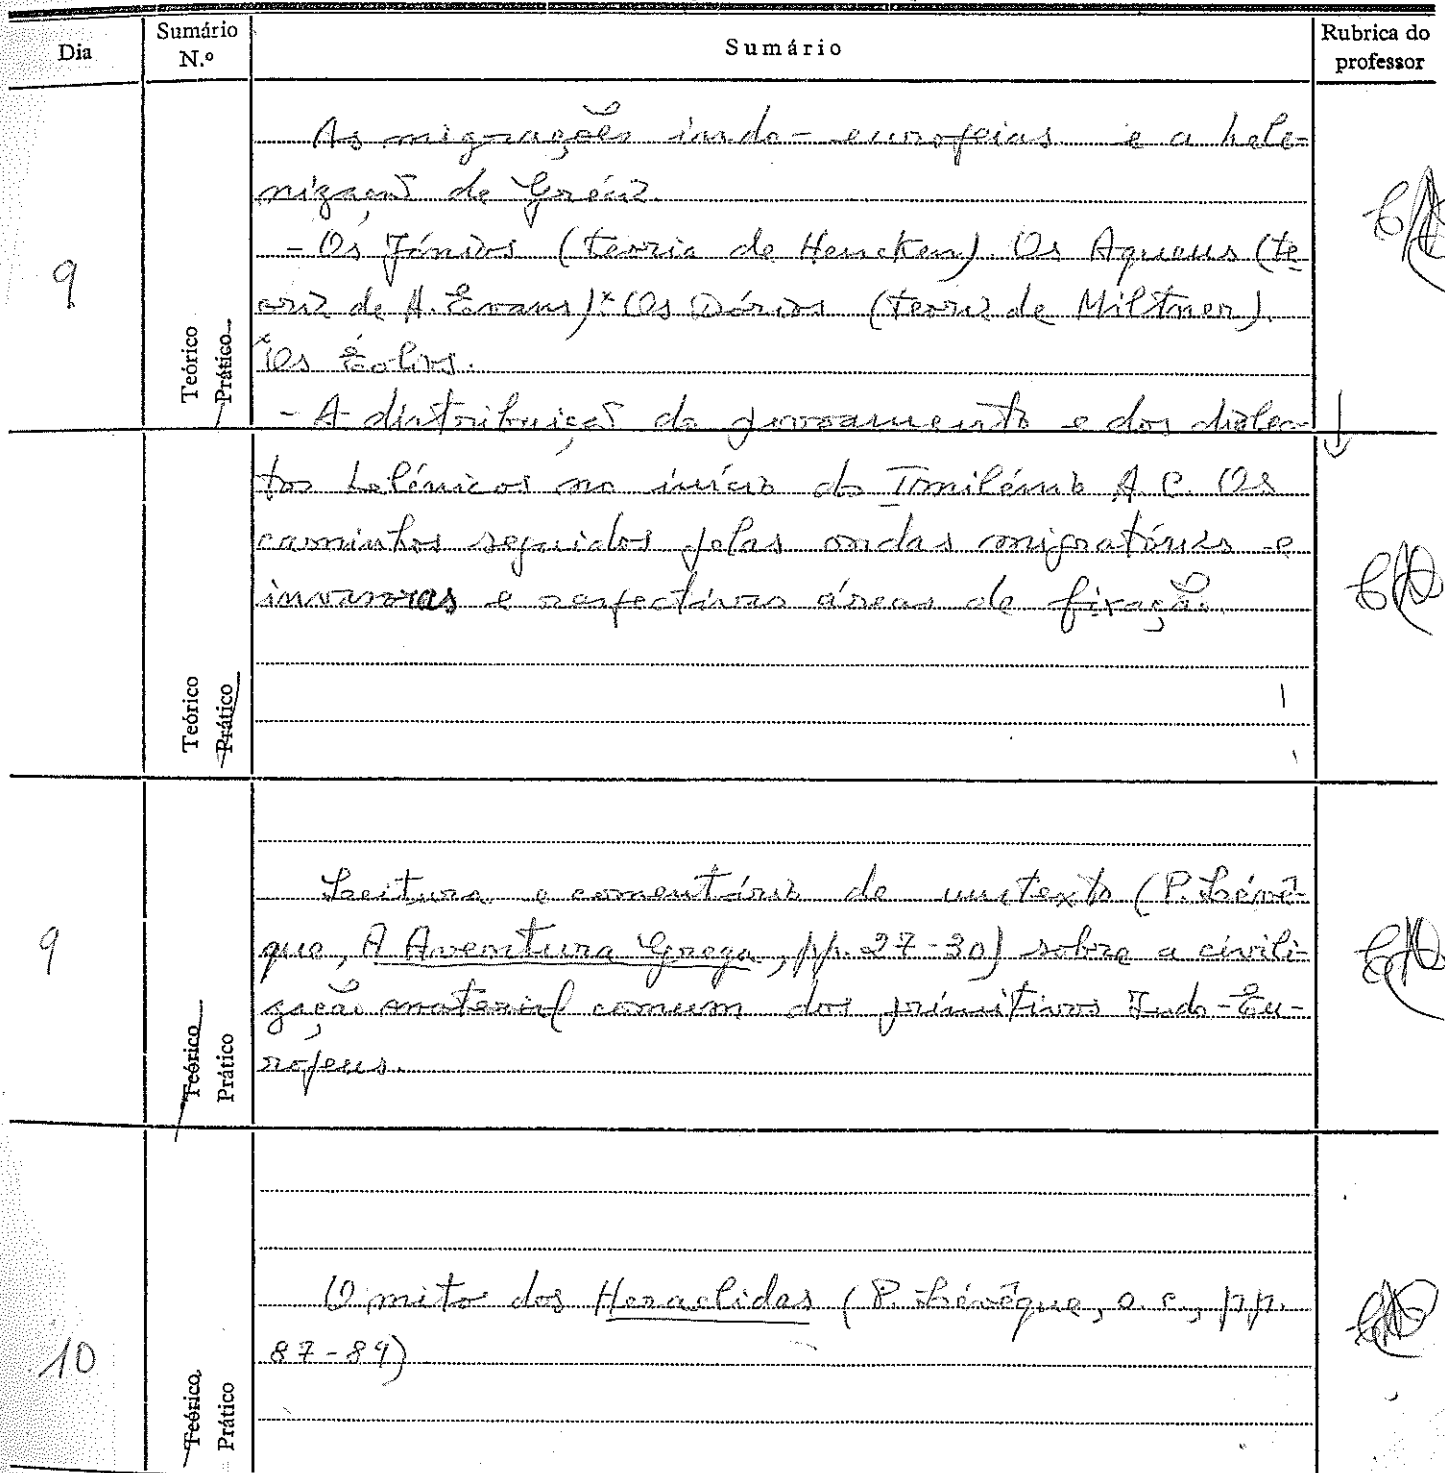 Dia
Sumário N.º
Sumário
Rubrica do professor
9
Teórico
Prático
As migrações indo-europeias e a hele-
nização da Grécia.
- Os Jónios (teoria de Hencken). Os Aqueus (te
oria de A. Evans)* (Os Dórios (teoria de Miltner).
*Os Eólios.
- A distribuição do povoamento e dos dialec-
Teórico
Prático
tos helénicos no início do I milénio A.C. Os
caminhos seguidos pelas ondas migratórias e
invasoras e respectivas áreas de fixação.
9
Teórico
Prático
Leitura e comentário de um texto (P. Lévê-
que, A Aventura Grega, pp. 27-30) sobre a civili-
zação material comum dos primitivos Indo-Eu-
ropeus.
10
Teórico
Prático
O mito dos Heraclidas (P. Lévêque, o. c., pp.
87-89)